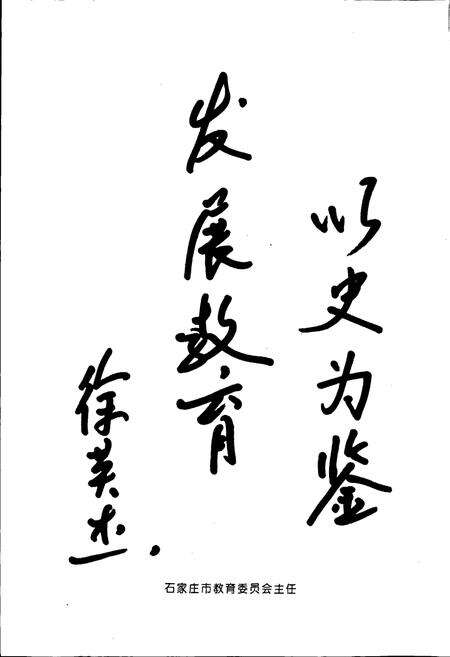 以史为鉴
发展教育
徐英杰
石家庄市教育委员会主任